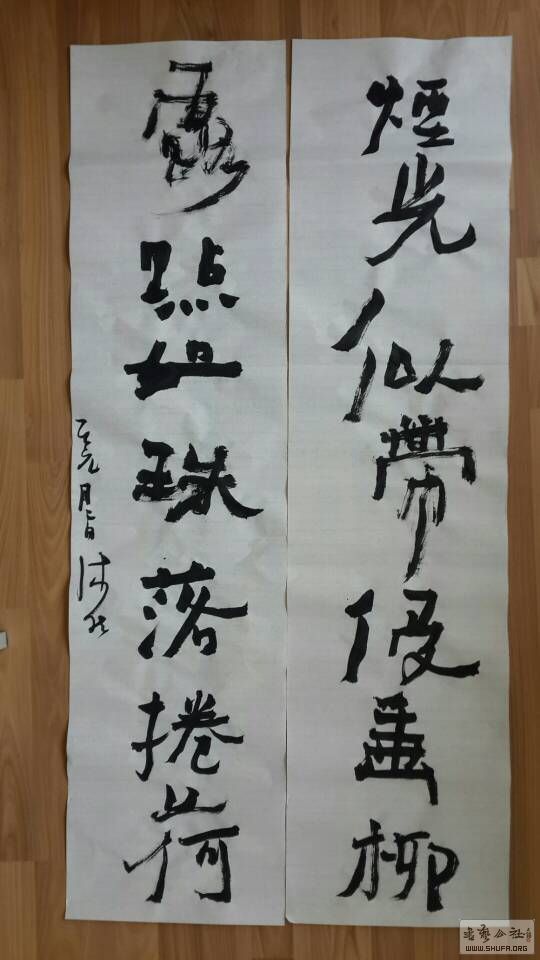 煙光似帶侵垂柳
露點如珠落捲荷
書藝公社
WWW.SHUFA.ORG